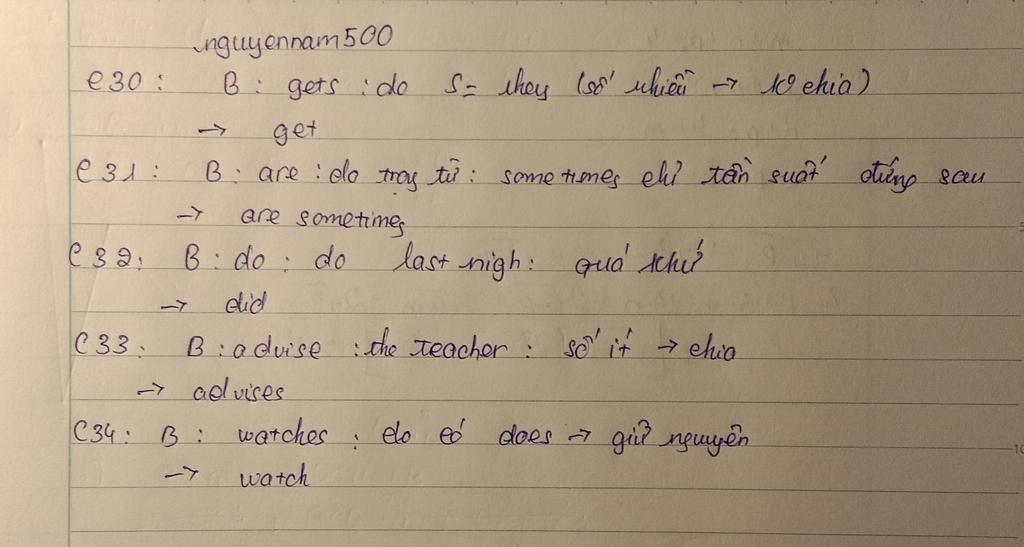 nguyennam500
C30 : B : gets : do S = they (số nhiều → ko chia)
→ get
C31 : B : are : do trạng từ : sometimes chỉ tần suất đứng sau
→ are sometimes
C32 : B : do : do last nigh : quá khứ
→ did
C33 : B : advise : the teacher : số ít → chia
→ advises
C34 : B : watches : do có does → giữ nguyên
→ watch